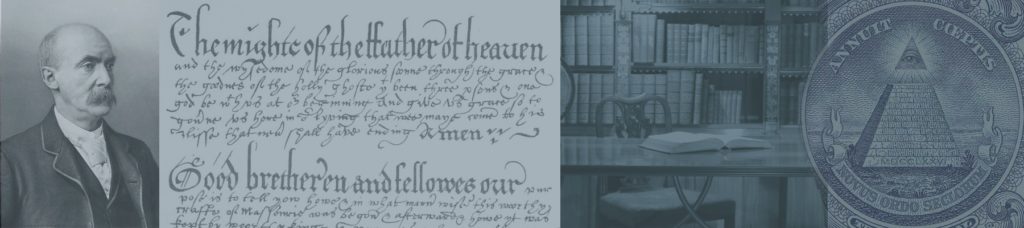 The mighte of the ffather of heaven
and the wysedome of the glorious sonne through the grace &
the goodnes of the holly ghoste yt been three psons & one
god be wth us at or beginning and give us grace so to
govrne us here in or lyving that wee maye come to his
blisse that nevr shall have ending Amen
Good bretheren and fellowes our
pose is to tell yow howe & in what mannr wise this worthy
crafte of Massonrie was begun & afterwards howe it was
kept by
ANNUIT CŒPTIS
MDCCLXXVI
NOVUS ORDO SECLORUM